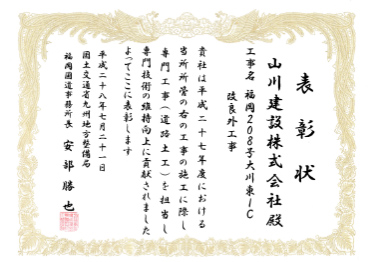 表彰状
山川建設株式会社殿
工事名 福岡208号大川東IC
改良外工事
貴社は平成二十七年度における
当所所管の右の工事の施工に際し
専門工事(道路土工)を担当し
専門技術の維持向上に貢献されました
よってここに表彰します
平成二十八年七月二十一日
国土交通省九州地方整備局
福岡国道事務所長 安部勝也